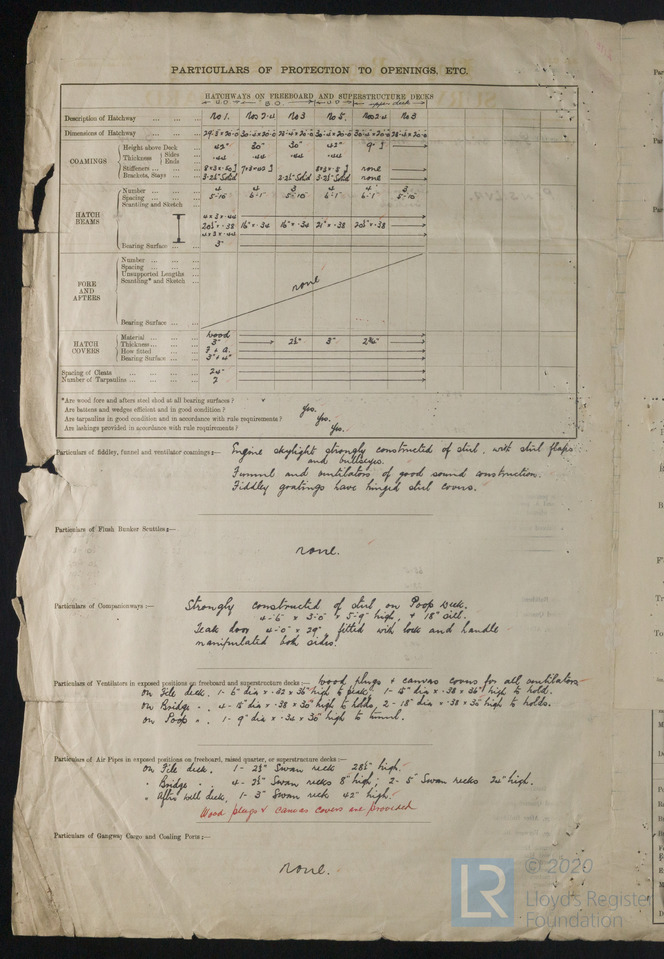 PARTICULARS OF PROTECTION TO OPENINGS, ETC.
HATCHWAYS ON FREEBOARD AND SUPERSTRUCTURE DECKS
upper deck
Description of Hatchway ... ... ... No 1. Nos 2-4 No 3 No 5. Nos 2-4 No 3
Dimensions of Hatchway ... ... ...
COAMINGS
Height above Deck 42" 30" 30" 42" 9"
Thickness Sides .44 .44 .44 .44
Ends
Stiffeners ... ... none
Brackets, Stays ... ... none
HATCH BEAMS
Number ... ... ... 4 4 3 4 4 3
Spacing ... ... ... 5-10 6-1" 5-10" 6-1" 6-1" 5-10
Scantling and Sketch
4 x 3 x .44
20½" x .38 16" x .34 16" x .34 21" x .38 20½" x .38
4 x 3 x .44
Bearing Surface ... ... 3"
FORE AND AFTERS
Number ... ... ...
Spacing ... ... ...
Unsupported Lengths ...
Scantling* and Sketch ...
none
Bearing Surface ... ...
HATCH COVERS
Material ... ... ... Wood
Thickness ... ... ... 3" 2½" 3"
How fitted ... ... F & A.
Bearing Surface ... ... 3" & 4"
Spacing of Cleats ... ... ... ... 24"
Number of Tarpaulins ... ... ... ... 2
*Are wood fore and afters steel shod at all bearing surfaces?
Are battens and wedges efficient and in good condition? Yes.
Are tarpaulins in good condition and in accordance with rule requirements? Yes.
Are lashings provided in accordance with rule requirements? Yes.
Particulars of fiddley, funnel and ventilator coamings:— Engine skylight strongly constructed of steel, with steel flaps
and bullseyes.
Funnel and ventilators of good sound construction.
Fiddley gratings have hinged steel covers.
Particulars of Flush Bunker Scuttles:—
none.
Particulars of Companionways:— Strongly constructed of steel on Poop deck.
4'-6" x 3'-0" x 5'-9" high, & 18" sill.
Teak door 4'-0" x 29" fitted with lock and handle
manipulated both sides.
Particulars of Ventilators in exposed positions on freeboard and superstructure decks:— Wood plugs & canvas covers for all ventilators
On F'cle deck. 1- 6" dia x .32 x 36" high to peak; 1- 15" dia x .38 x 36" high to hold.
On Bridge " . 4- 15" dia x .38 x 30" high to holds, 2- 18" dia x .38 x 30" high to holds.
On Poop " . 1- 9" dia x .34 x 30" high to tunnel.
Particulars of Air Pipes in exposed positions on freeboard, raised quarter, or superstructure decks:—
On F'cle deck. 1- 2½" Swan neck 28½" high.
" Bridge " 4- 2½" Swan necks 8" high; 2- 5" Swan necks 24" high.
" After well deck, 1- 3" Swan neck 42" high.
Wood plugs & canvas covers are provided
Particulars of Gangway Cargo and Coaling Ports:—
none.
LR
© 2020
Lloyd's Register
Foundation